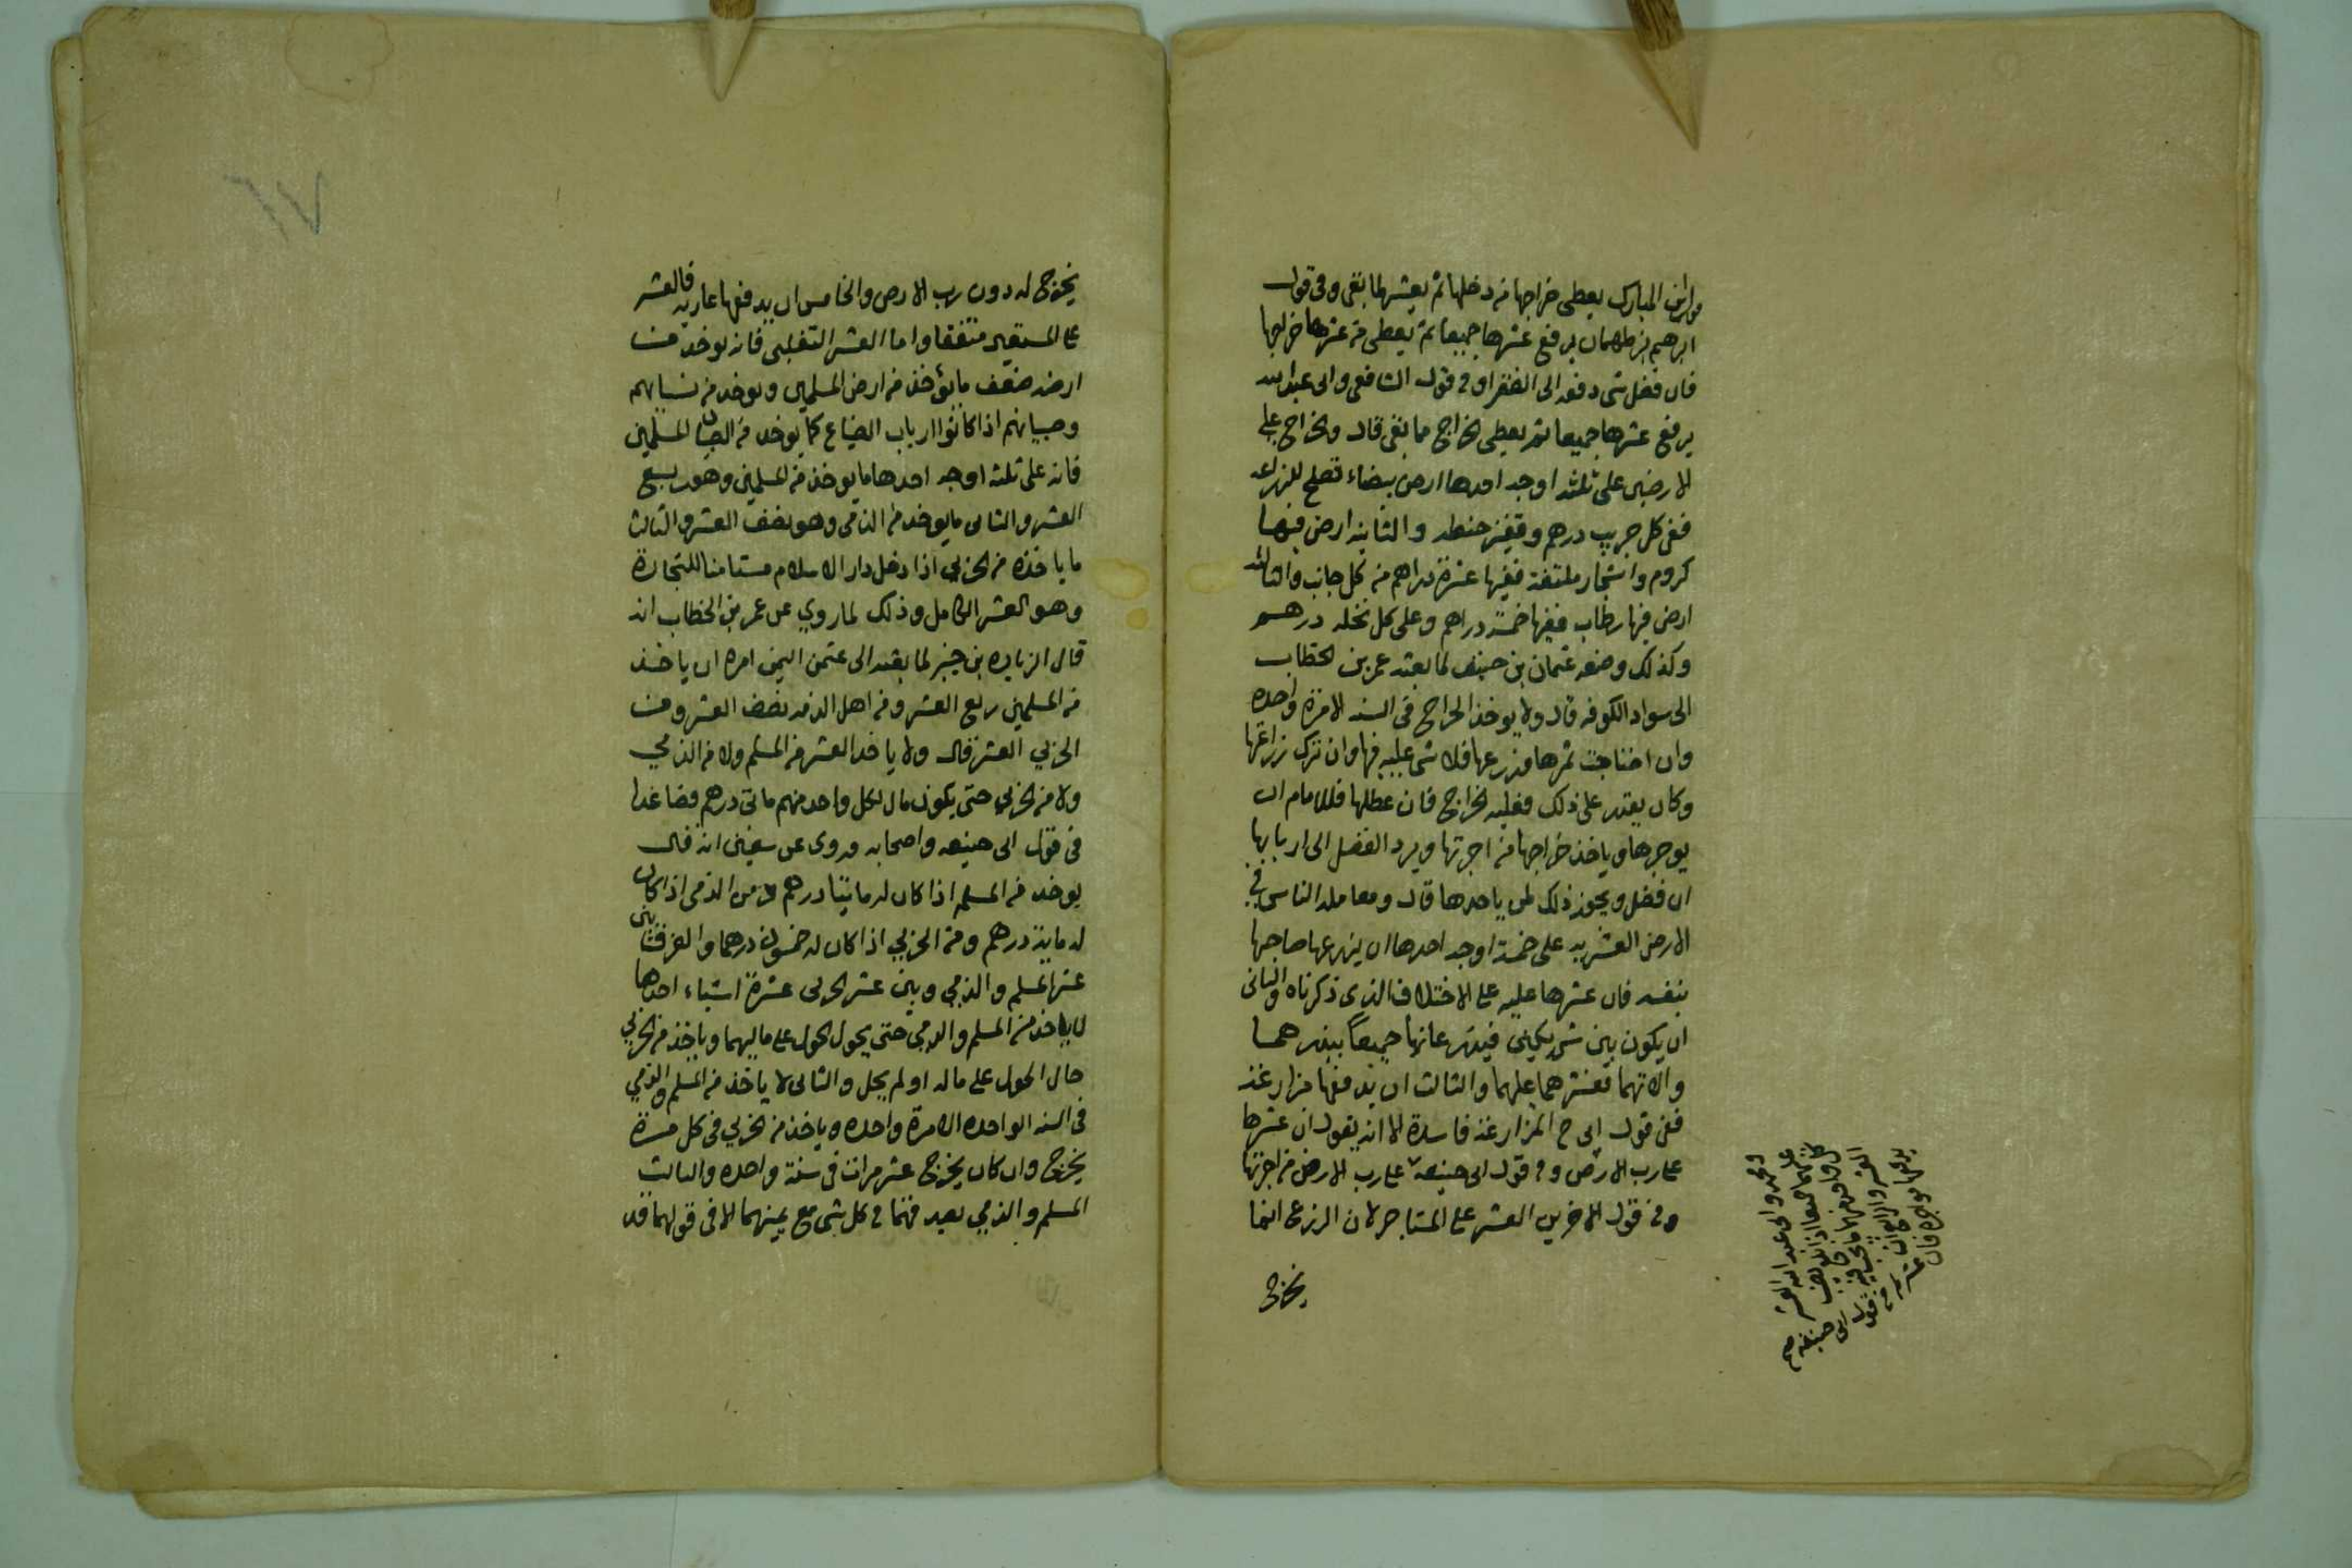 وابن المبارك يعطى خراجها من دخلها ثم يعشر لما بقى وفى قول
ابرهيم بن طهمان يرفع عشرها جميعا ثم يعطى من عشرها خراجها
فان فضل شى دفعه الى الفقرا وفى قول الشافعى وابى عبدالله
يرفع عشرها جميعا ثم يعطى الخراج مما بقى قال والخراج على
الارضين على ثلثة اوجه احدها ارض بيضاء تصلح للزراعه
ففى كل جريب درهم وقفيز حنطه والثانيه ارض فيها
كروم واشجار ملتفة ففيها عشرة دراهم من كل جانب والثالثه
ارض فيها رطاب ففيها خمسة دراهم وعلى كل نخله درهم
وكذلك وضعه عثمان بن حنيف لما بعثه عمر بن الخطاب
الى سواد الكوفه قال ولا يوخذ الخراج فى السنه الا مرة واحده
وان اجتاحت ثمرها وزرعها فلا شى عليه فيها وان ترك زراعتها
وكان يقدر على ذلك فعليه الخراج فان عطلها فللامام ان
يوجرها وياخذ خراجها من اجرتها ويرد الفضل الى اربابها
ان فضل ويجوز ذلك لمن ياخذها قال ومعاملة الناس فى
الارض العشريه على خمسة اوجه احدها ان يزرعها صاحبها
بنفسه فان عشرها عليه على الاختلاف الذى ذكرناه والثانى
ان يكون بين شريكين فيزرعانها جميعاً ببذرهما
والاتهما فعشرهما عليهما والثالث ان يدفعها مزارعة
ففى قول ابى ح المزارعة فاسدة الا انه يقول ان عشرها
على رب الارض وفى قول ابى حنيفة على رب الارض من اجرتها
وفى قول الاخرين العشر على المستاجر لان الزرع انما
يخرج
ومحمد وابى عبد الله العشر
العشر والرابع ان
يدفعها مواجرة فان عشره فى قول ابى حنيفه صح
يخرج له دون رب الارض والخامس ان يدفعها عاريه فالعشر
على المستعير متفقا واما العشر التغلبى فانه يوخذ من
ارضه ضعف ما يؤخذ من ارض المسلمين ويوخذ من نسايهم
وصبيانهم اذا كانوا ارباب الضياع كما يوخذ من الصبيان المسلمين
فانه على ثلثة اوجه احدها ما يوخذ من المسلمين وهو ربع
العشر والثانى ما يوخذ من الذمى وهو نصف العشر والثالث
ما ياخذه من الحربي اذا دخل دار الاسلام مستامنا للتجارة
وهو العشر الكامل وذلك لما روي عن عمر بن الخطاب انه
قال لزياده بن جبير لما بعثه الى عشر اليمن امره ان ياخذ
من المسلمين ربع العشر ومن اهل الذمه نصف العشر ومن
الحربي العشر قال ولا ياخذ العشر من المسلم ولا من الذمي
ولا من الحربي حتى يكون مال لكل واحد منهم ماتى درهم فصاعدا
فى قول ابى حنيفه واصحابه وروى عن سفين انه قال
يوخذ من المسلم اذا كان له مايتا درهم ومن الذمى اذا كان
له ماية درهم ومن الحربي اذا كان له خمسون درهما والفرق بين
عشر المسلم والذمي وبين عشر الحربى عشرة اشياء احدها
لا ياخذ من المسلم والذمي حتى يحول الحول على ماليهما وياخذ من الحربي
حال الحول على ماله او لم يحل والثانى لا ياخذ من المسلم والذمي
فى السنه الواحده الا مرة واحده وياخذ من الحربي فى كل مرة
يخرج وان كان يخرج عشر مرات فى سنة واحده والثالث
المسلم والذمي يصدقهما فى كل شى مع يمينهما الا فى قولهما قد